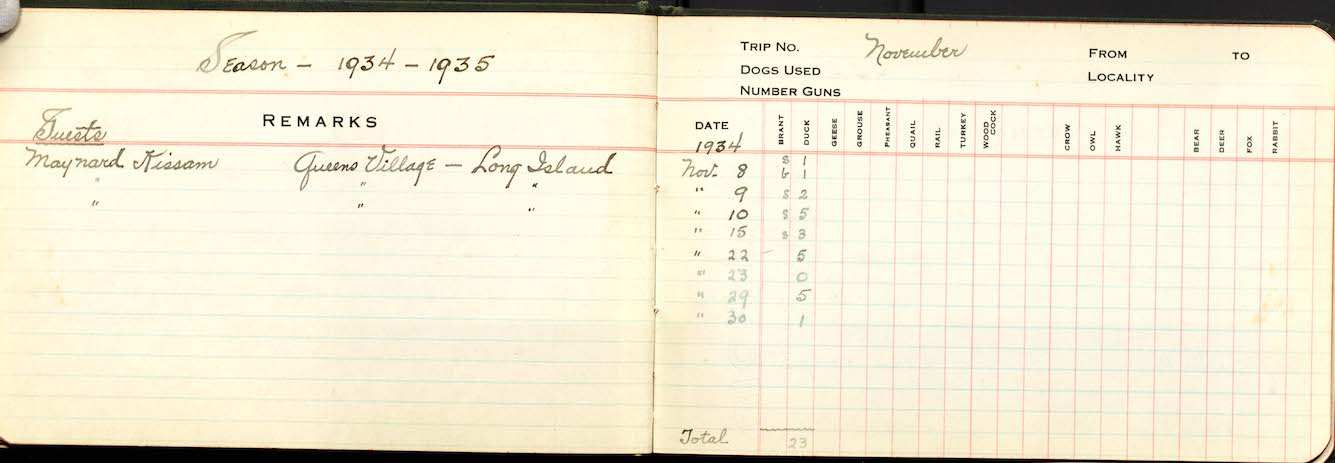 Season - 1934 - 1935
REMARKS
Guests
Maynard Kissam Queens Village - Long Island
" " "
" " "
TRIP NO. November FROM TO
DOGS USED LOCALITY
NUMBER GUNS
DATE BRANT DUCK GEESE GROUSE PHEASANT QUAIL RAIL TURKEY WOOD COCK CROW OWL HAWK BEAR DEER FOX RABBIT
1934
S 1
Nov. 8 1
" 9 S 2
" 10 S 5
" 15 S 3
" 22 5
" 23 0
" 29 5
" 30 1
Total 23